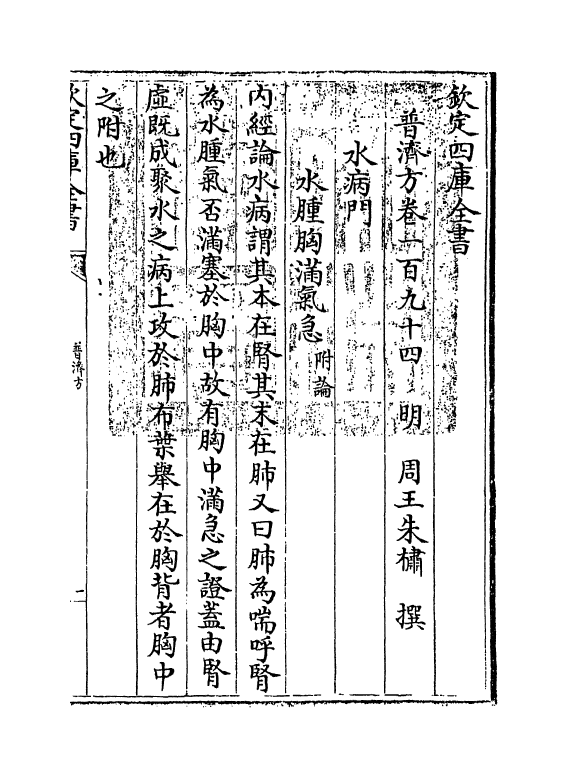 欽定四庫全書
普濟方卷一百九十四　明　周王朱橚　撰
水病門
水腫胸滿氣急附論
内經論水病謂其本在腎其末在肺又曰肺為喘呼腎
為水腫氣否滿塞於胸中故有胸中滿急之證蓋由腎
虛既成聚水之病上攻於肺布葉舉在於胸背者胸中
之附也
欽定四庫全書
普濟方